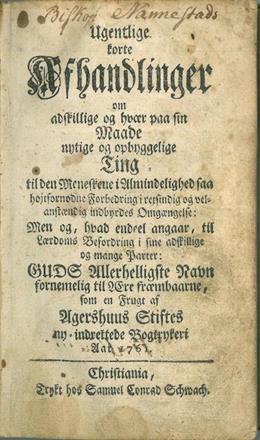 Biskop Nannestads
Ugentlige
korte
Afhandlinger
om
adskillige og hvær paa sin
Maade
nytige og opbyggelige
Ting
til den Meneskene i Almindelighed saa
høifornødne Forbedring i retsindig og vel-
anstændig indbyrdes Omgængelse:
Men og, hvad endeel angaar, til
Lærdoms Befordring i sine adskillige
og mange Parter:
GUDS Allerhelligste Navn
fornemelig til Ære fræmbaarne,
som en Frugt af
Agershuus Stiftes
ny-indrettede Bogtrykeri
Aar 1761.
Christiania,
Trykt hos Samuel Conrad Schwach.